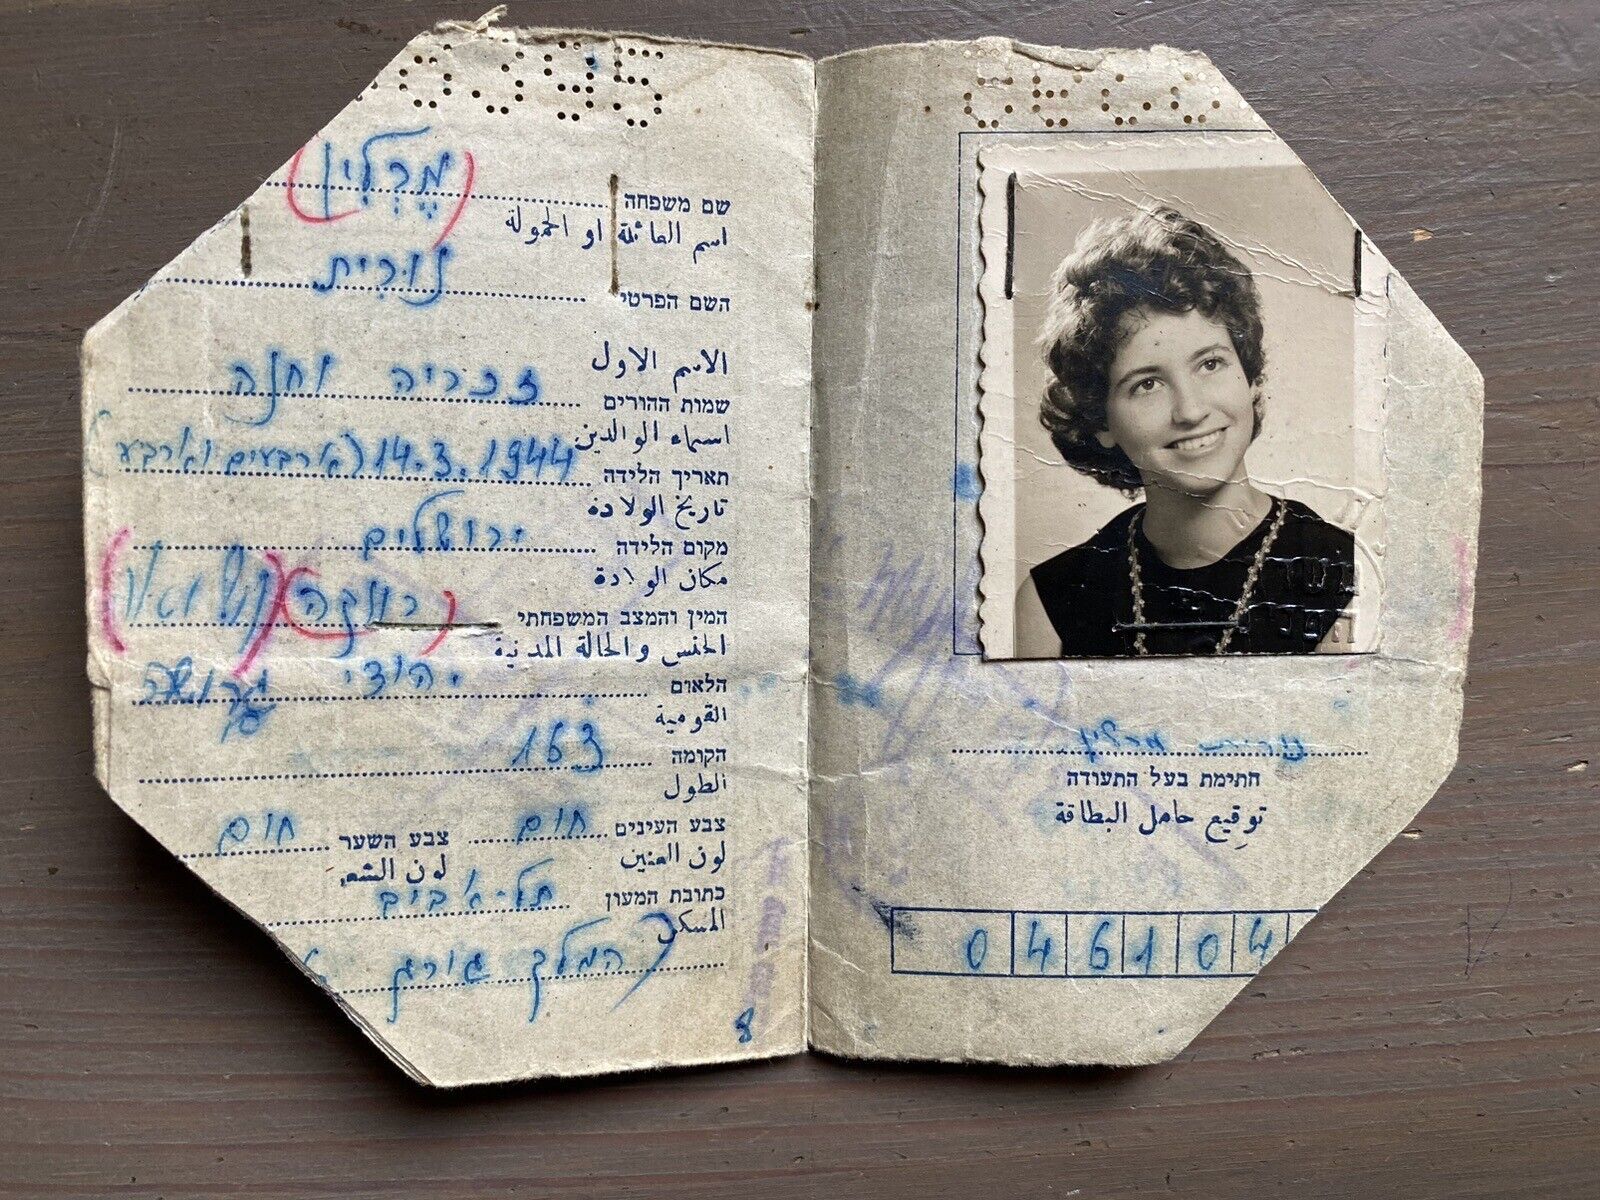 שם משפחה (מרלין)
اسم العائلة او الحمولة
השם הפרטי נורית
الاسم الاول
שמות ההורים זכריה וחנה
اسماء الوالدين
תאריך הלידה 14.3.1944 (ארבעים וארבע
تاريخ الولادة
מקום הלידה ירושלים
مكان الولادة
המין והמצב המשפחתי (רווקה)
الجنس والحالة المدنية
הלאום יהודי גרושה
القومية
הקומה 153
الطول
צבע העינים חום צבע השער חום
لون العينين لون الشعر
כתובת המעון תל-אביב
المسكن
המלך גורג
8
נורית מרלין
חתימת בעל התעודה
توقيع حامل البطاقة
046104